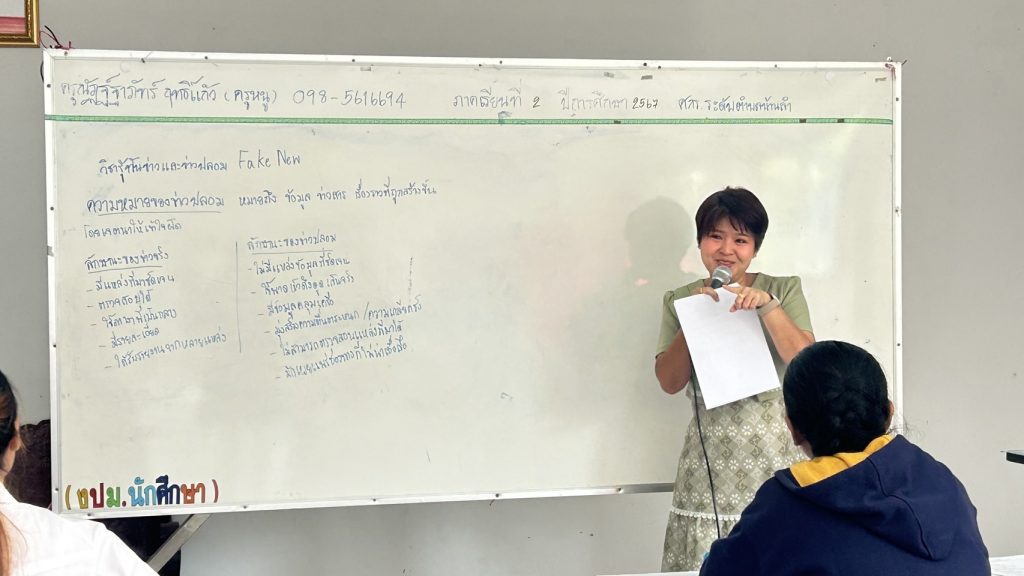 ครูณัฏฐ์ชาภัทร์ ฤทธิ์แก้ว (ครูหนู) 098-5616694 ภาคเรียนที่ 2 ปีการศึกษา 2567 ศกร.ระดับตำบล
Fake New
ความหมายของข่าวปลอม หมายถึง ข้อมูล ข่าวสาร เรื่องราวที่ถูกสร้างขึ้น
โดยเจตนาให้เข้าใจผิด
ลักษณะของข่าวจริง
- มีแหล่งที่มาชัดเจน
- ตรวจสอบได้
- ใช้ภาษาที่เป็นกลาง
- มีรายละเอียด
- ได้รับรายงานจากหลายแหล่ง
ลักษณะของข่าวปลอม
- ไม่มีแหล่งข้อมูลที่ชัดเจน
- ใช้พาดหัวดึงดูดเกินจริง
- มีข้อมูลคลุมเครือ
- มุ่งสร้างความตื่นตระหนก / ความเกลียดชัง
- ไม่สามารถตรวจสอบแหล่งที่มาได้
- มักเผยแพร่ช่องทางที่ไม่น่าเชื่อถือ
(ทปม.นักศึกษา)